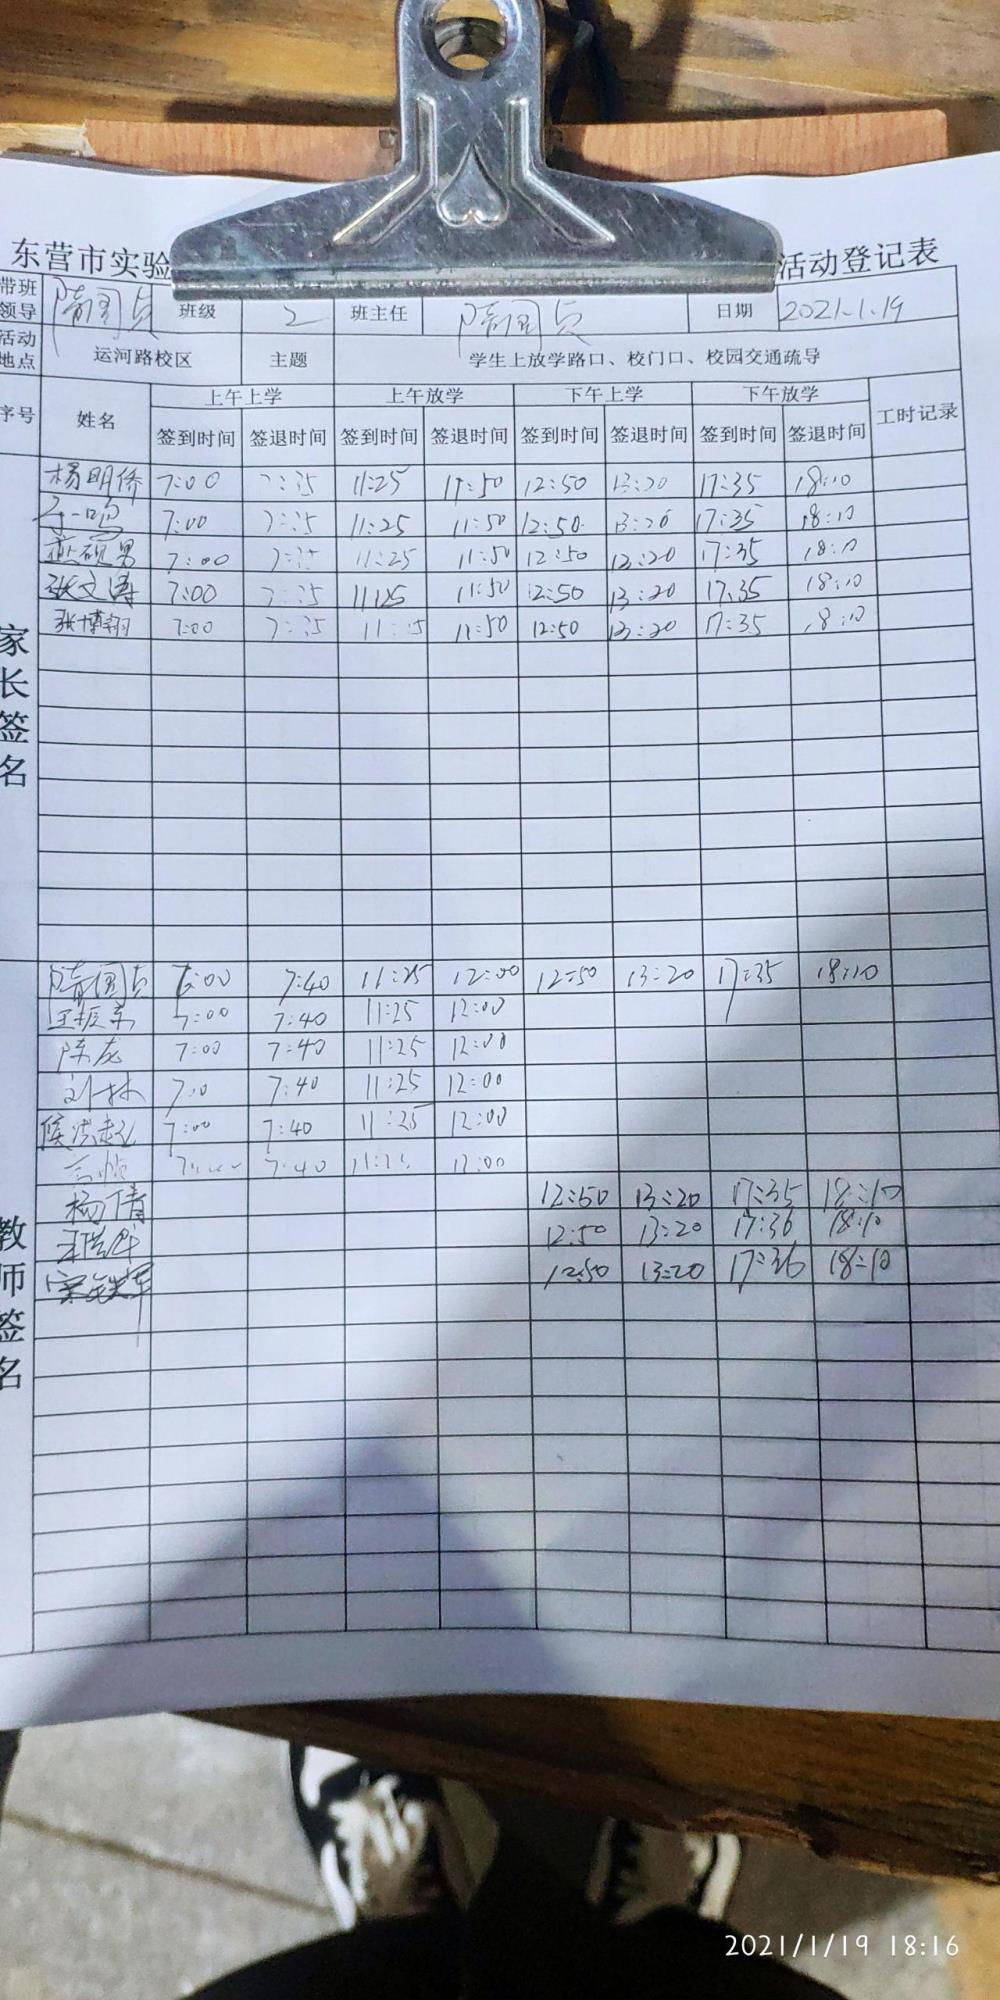 东营市实验 活动登记表
带班领导 隋国贞 班级 2 班主任 隋国贞 日期 2021.1.19
活动地点 运河路校区 主题 学生上放学路口、校门口、校园交通疏导
序号 姓名 上午上学 上午放学 下午上学 下午放学 工时记录
签到时间 签退时间 签到时间 签退时间 签到时间 签退时间 签到时间 签退时间
家长签名
杨明侨 7:00 7:35 11:25 11:50 12:50 13:20 17:35 18:10
7:00 7:35 11:25 11:50 12:50 13:20 17:35 18:10
7:00 7:35 11:25 11:50 12:50 13:20 17:35 18:10
张文涛 7:00 7:35 11:25 11:50 12:50 13:20 17:35 18:10
张博翔 7:00 7:35 11:25 11:50 12:50 13:20 17:35 18:10
教师签名
隋国贞 7:00 7:40 11:25 12:00 12:50 13:20 17:35 18:10
7:00 7:40 11:25 12:00
陈龙 7:00 7:40 11:25 12:00
刘林 7:0 7:40 11:25 12:00
7:00 7:40 11:25 12:00
7:40 12:00
杨倩 12:50 13:20 17:35 18:10
12:50 13:20 17:36 18:10
12:50 13:20 17:36 18:10
2021/1/19 18:16